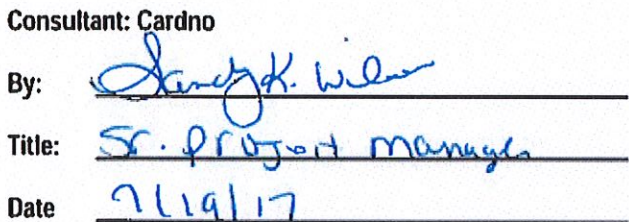 Consultant: Cardno
By: Sandy K. Wilson
Title: Sr. Project Manager
Date 7/19/17